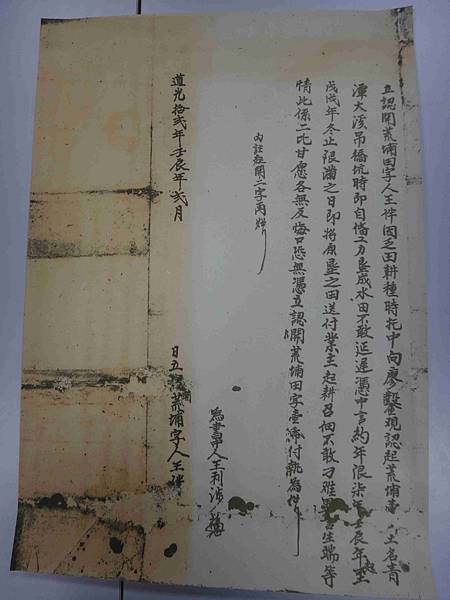 立認開荒埔田字人王伴因乏田耕種時托中向廖 觀認起荒埔 土名青
潭大溪吊橋坑時即自備工力墾成水田不敢延遲憑中言約年限柒年壬辰年 至
戊戌年冬止限滿之日即將原墾之田送付業主起耕召佃不敢刁難 生端等
情此係二比甘愿各無反悔口恐無憑立認開荒埔田字壹 付執為
內註 開二字再
道光拾貳年壬辰年 貳月
日立 荒埔字人王伴
為書 人王利涉